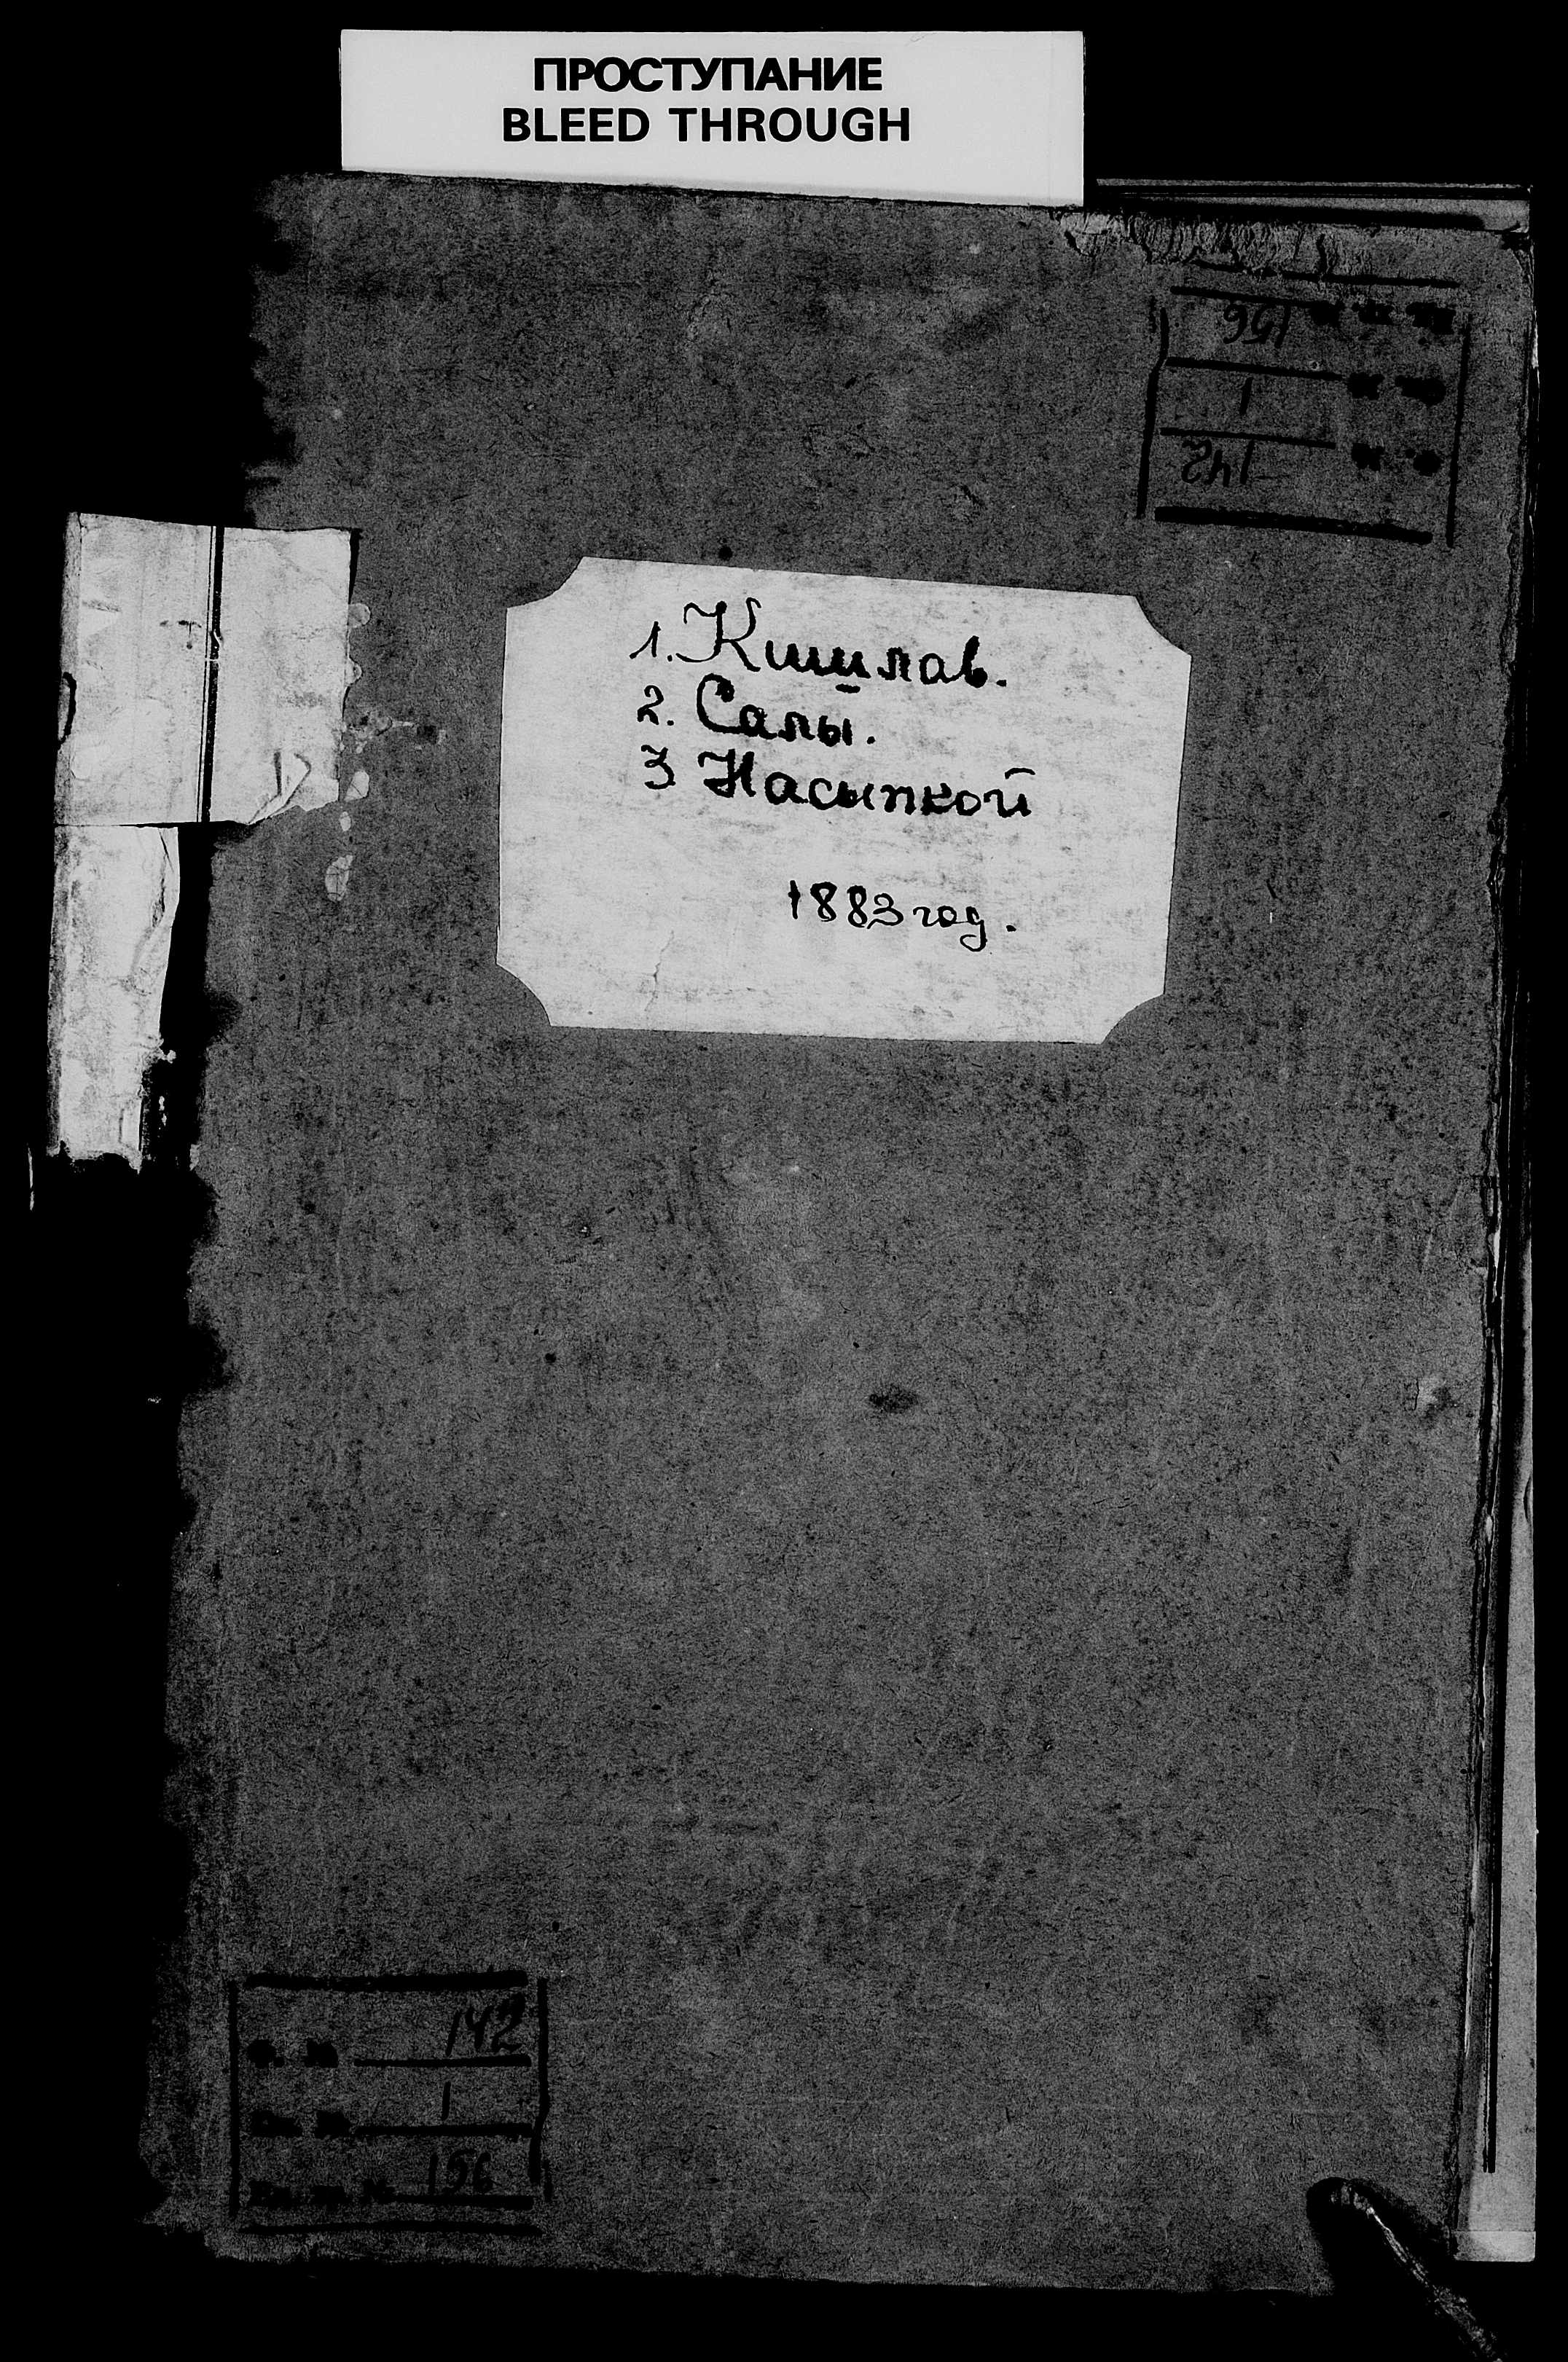 ПРОСТУПАНИЕ
BLEED THROUGH
156
1
142
1. Кишлав.
2. Салы.
3 Насыпкой
1883 год.
Ф. № 142
Оп. № 1
Ед. хр. № 156